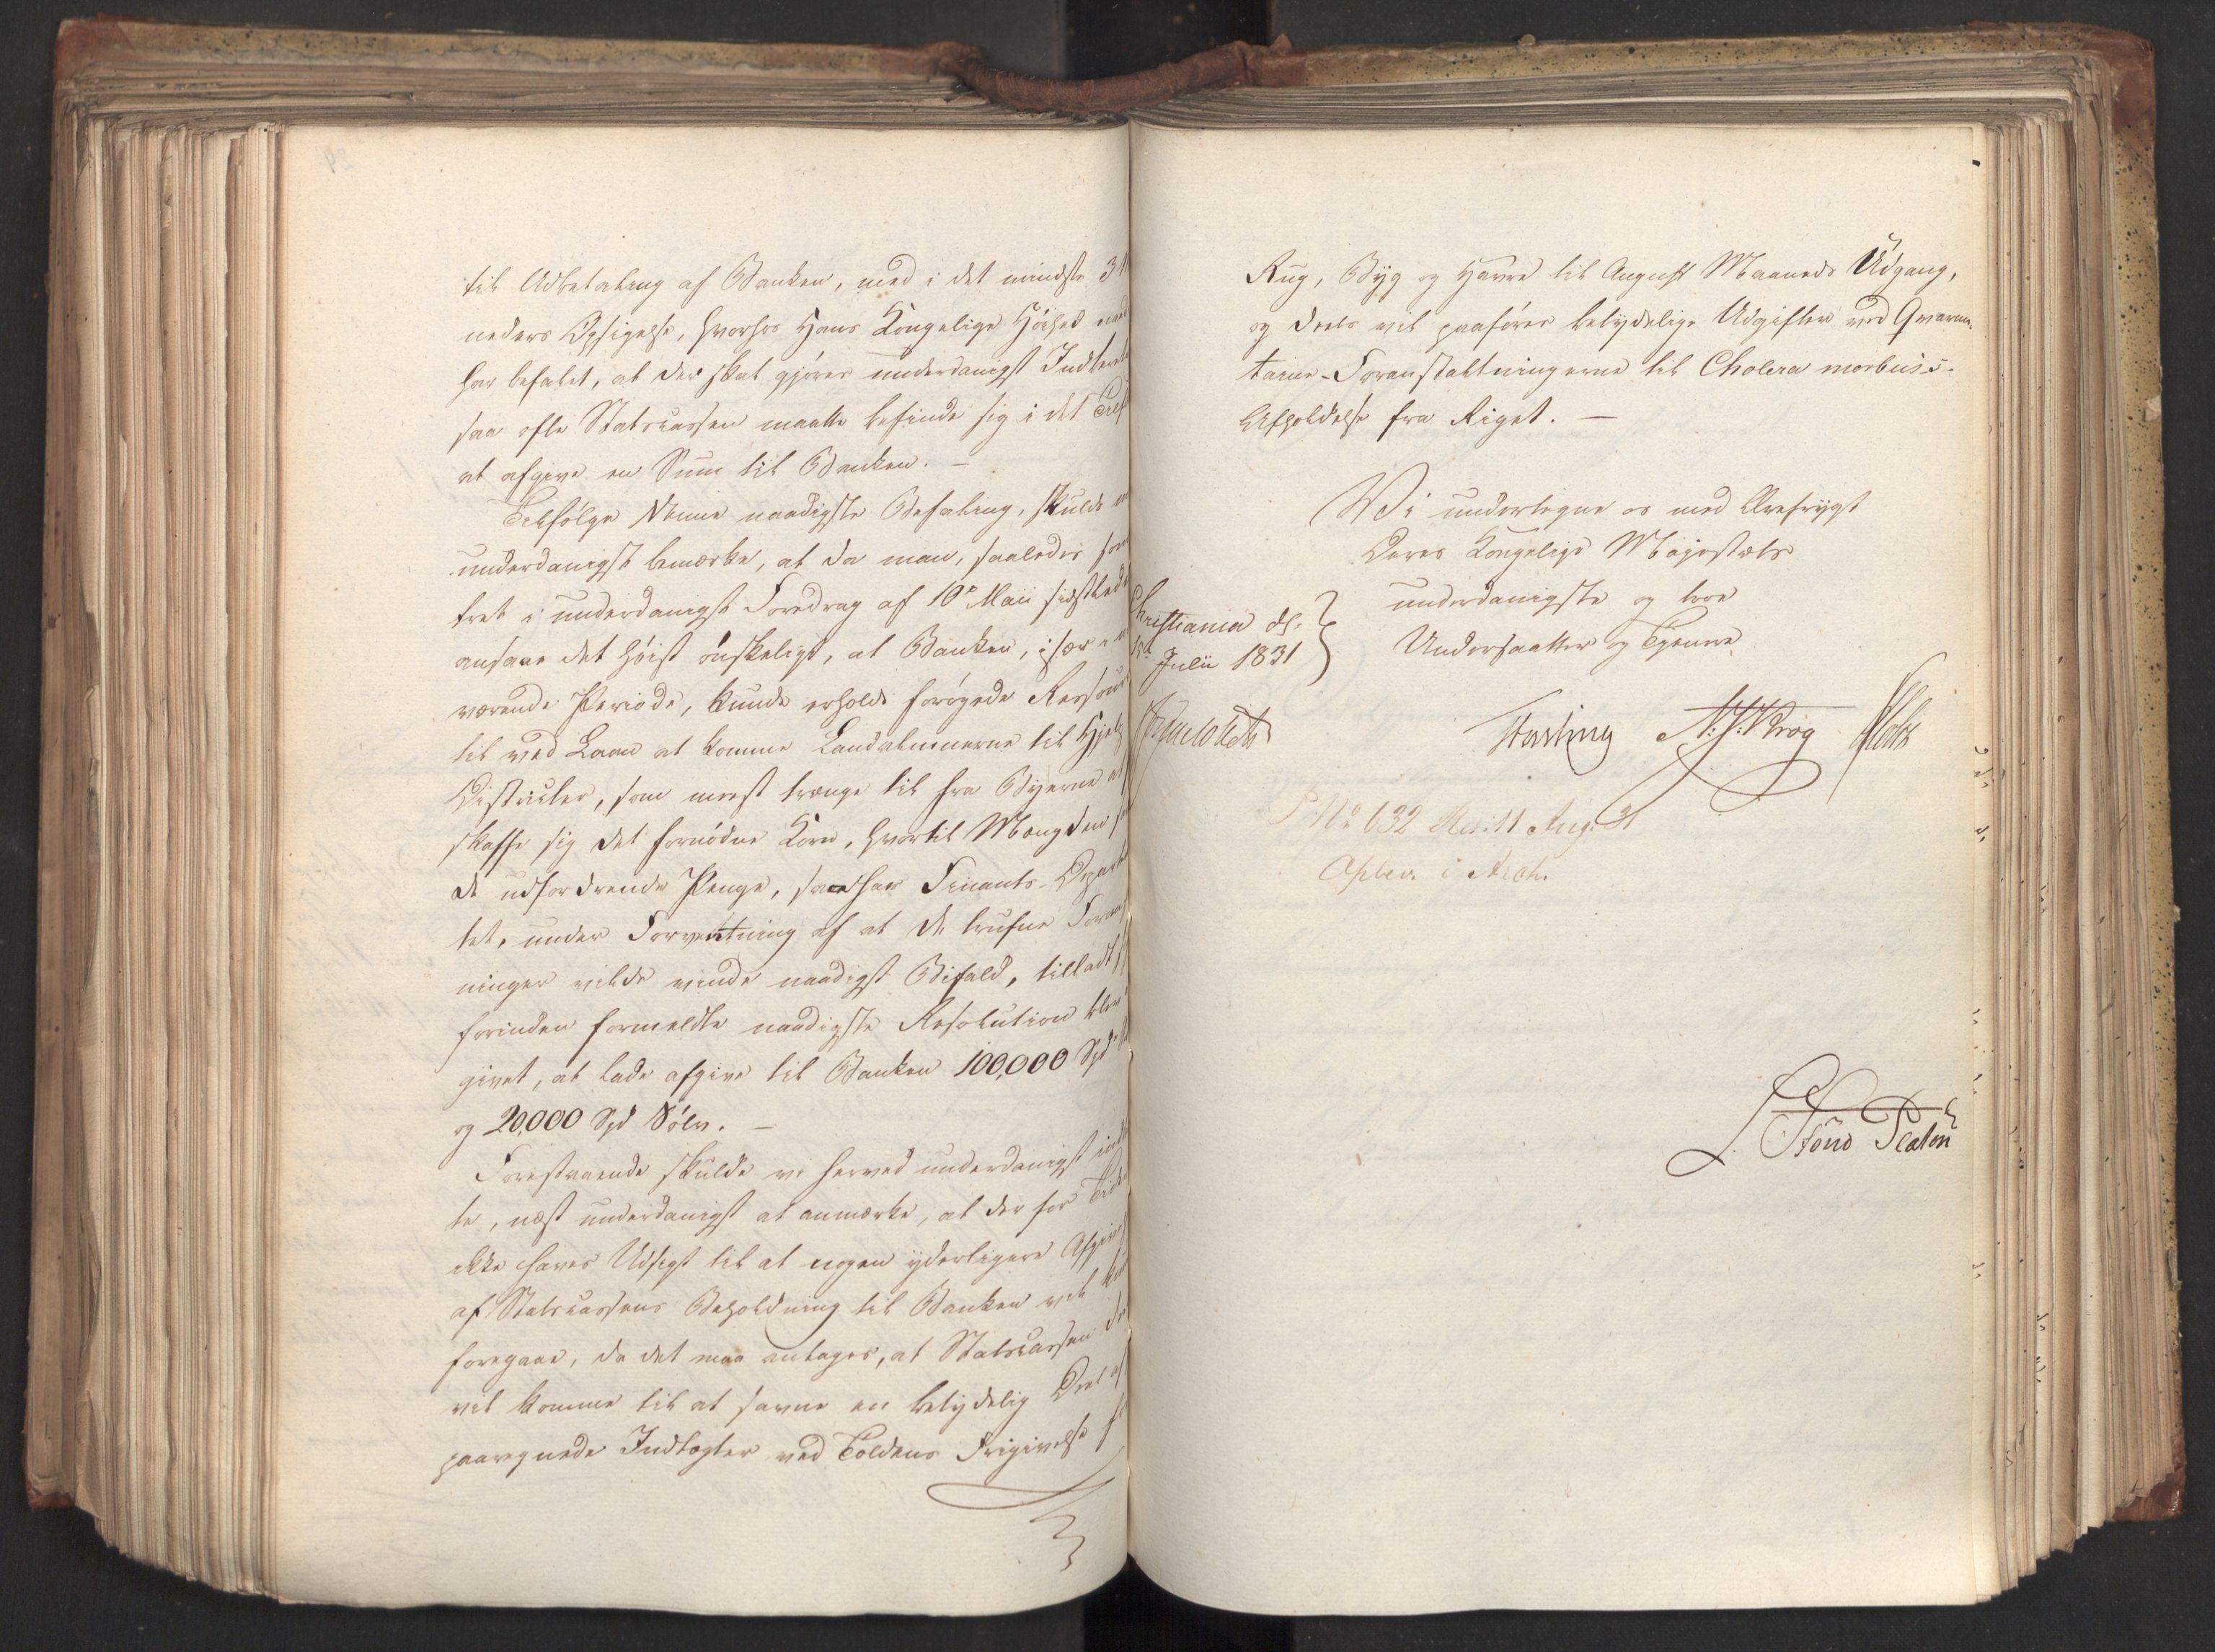 til Udbetaling af Banken, med i det mindste 3
neders Opsigelse, hvorhos Hans Kongelige Höihed naad
har befalet, at der skal gjöres underdanigst Indberet
saa ofte Statscassen maatte befinde sig i det Tilf
at afgive en Sum til Banken. —
Tilfölge denne naadigste Befaling, skulde
underdanigst bemærke, at da man, saaledes som
tret i underdanigst Foredrag af 10de Maii sidstled
ansaae det höist önskeligt, at Banken, især
værende Periode, kunde erholde forögede Ressour
til ved Laan at komme Landalmuerne til Hjelp
Districter, som meest trænge til fra Byerne at
skaffe sig det fornödne Korn, hvortil Mængden
de udfordrende Penge, saa har Finants-Depart
tet, under Forventning af at de trufne Foran
ninger vilde vinde naadigst Bifald, tilladt
forinden formeldte naadigste Resolution blev
givet, at lade afgive til Banken 100,000 Spd
og 20,000 Spd Sölv. —
Forestaaende skulde vi herved underdanigst ind
te, næst underdanigst at anmærke, at der for Tid
ikke haves Udsigt til at nogen yderligere Afgiv
af Statscassens Beholdning til Banken vil
foregaae, da det maa antages, at Statscassen
vil komme til at savne en betydelig Deel af
paaregnede Indtægter ved Toldens Frigivelse
Rug, Byg og Havre til August Maaneds Udgang,
og deels vil paaföres betydelige Udgifter ved Qvaran-
taine-Foranstaltningerne til Cholera morbus's
Afholdelse fra Riget. —
Vi undertegne os med Ærefrygt
Deres Kongelige Majestæts
underdanigste og troe
Undersaatter og Tjenere
Christiania d.
Julii 1831
Collett
Fasting N: J: Krog Holst
P. No 632 Res: 11 Aug: 31
Aflev. i Arch.
Platou